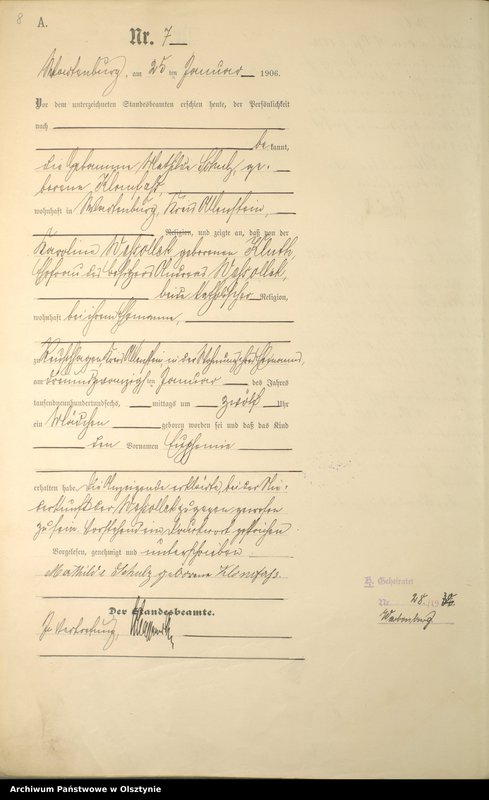 8
A.
Nr. 7
Wartenburg, am 25 ten Januar 1906.
Vor dem unterzeichneten Standesbeamten erschien heute, der Persönlichkeit
nach
bekannt,
die Hebamme Mathilde Schulz, ge-
borene Klomfass,
wohnhaft in Wartenburg, Kreis Allenstein,
Religion, und zeigte an, daß von der
Karoline Wessollek geborenen Kluth,
Ehefrau des Besitzers Andreas Wessollek,
beide katholischer Religion,
wohnhaft bei ihrem Ehemanne,
zu Kreis Allenstein, in der Wohnung ihres Ehemannes,
am dreiundzwanzigsten Januar des Jahres
tausendneunhundertundsechs, mittags um zwölf Uhr
ein Mädchen geboren worden sei und daß das Kind
den Vornamen Euphemie
erhalten habe. Die Anzeigende erklärte, bei der Nie-
derkunft der Wessollek zugegen gewesen
zu sein. Vorstehend ein Druckwort gestrichen.
Vorgelesen, genehmigt und unterschrieben
Mathilde Schulz geborene Klomfass.
Der Standesbeamte.
In Vertretung.
H. Geheiratet
Nr. 28/19 30
Wartenburg
Archiwum Państwowe w Olsztynie